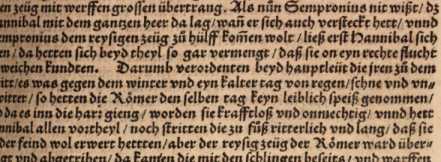 en zeüg mit werffen grossen übertrang. Als nůn Sempronius nit wißt/ dz
nnibal mit dem gantzen heer da lag/ wañ er sich auch versteckt hett/ vnnd
empronius dem reysigen zeüg zů hülff kom̃en wolt/ ließ erst Hannibal sich
en/ da hetten sich beyd theyl so gar vermengt/ daß sie on eyn rechte flucht
weichen kundten. Darumb verordenten beyd hauptleüt die jren zů dem
itt/ es was gegen dem winter vnd eyn kalter tag von regen/ schne vnd vn=
vitter/ so hetten die Römer den selben tag keyn leiblich speiß genommen/
d da es inn die harr gieng/ worden sie krafftloß vnd onmechtig/ vnnd hett
nnibal allen vortheyl/ noch stritten die zů fůß ritterlich vnd lang/ daß sie
der feind wol erwert hettten/ aber der reysig zeüg der Römer ward über=
gt vnd abgetriben/ da kamen die mit den schlingen beseits/ vnd